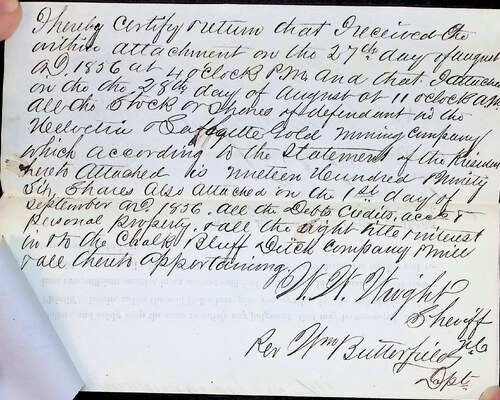 I hereby certify & return that I received the
within attachment on the 27th day of august
AD. 1856 at 4 oclock P.M. and that I attached
on the the 28th day of August at 11 oclock A.M.
all the Stock or Shares of defendant in the
Helvetia & Lafayette Gold Mining Company
which according to the Statement of the President
hereto Attached is nineteen Hundred Ninety
Six, Shares Also attached on the 1st day of
September AD. 1856. all the Debts Credits, accts &
Personal property. & all the right title & interest
in & to the Chalk Bluff Ditch Company & Mill
& all thereto appertaining.
W. W. Wright
Sheriff
Per Wm Butterfield
Dpt.